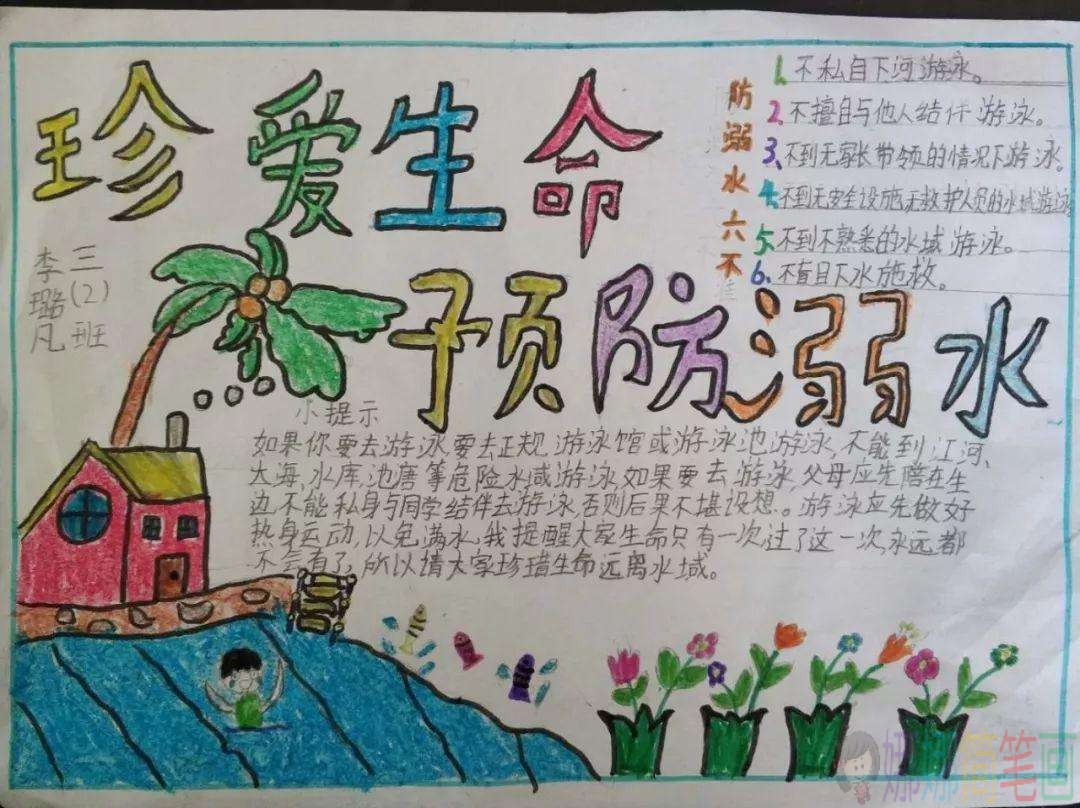 珍爱生命
预防溺水
三(2)班
李璐凡
防溺水六不
1、不私自下河游泳。
2、不擅自与他人结伴游泳。
3、不到无家长带领的情况下游泳。
4、不到无安全设施、无救护人员的水域游泳
5、不到不熟悉的水域游泳。
6、不盲目下水施救。
小提示
如果你要去游泳,要去正规游泳馆或游泳池游泳,不能到江河、
大海,水库,池唐等危险水域游泳,如果要去游泳,父母应先陪在生
边,不能私身与同学结伴去游泳,否则后果不堪设想。游泳应先做好
热身运动,以免满水,我提醒大家生命只有一次,过了这一次,永远都
不会有了,所以请大家珍惜生命远离水域。
娜娜简笔画